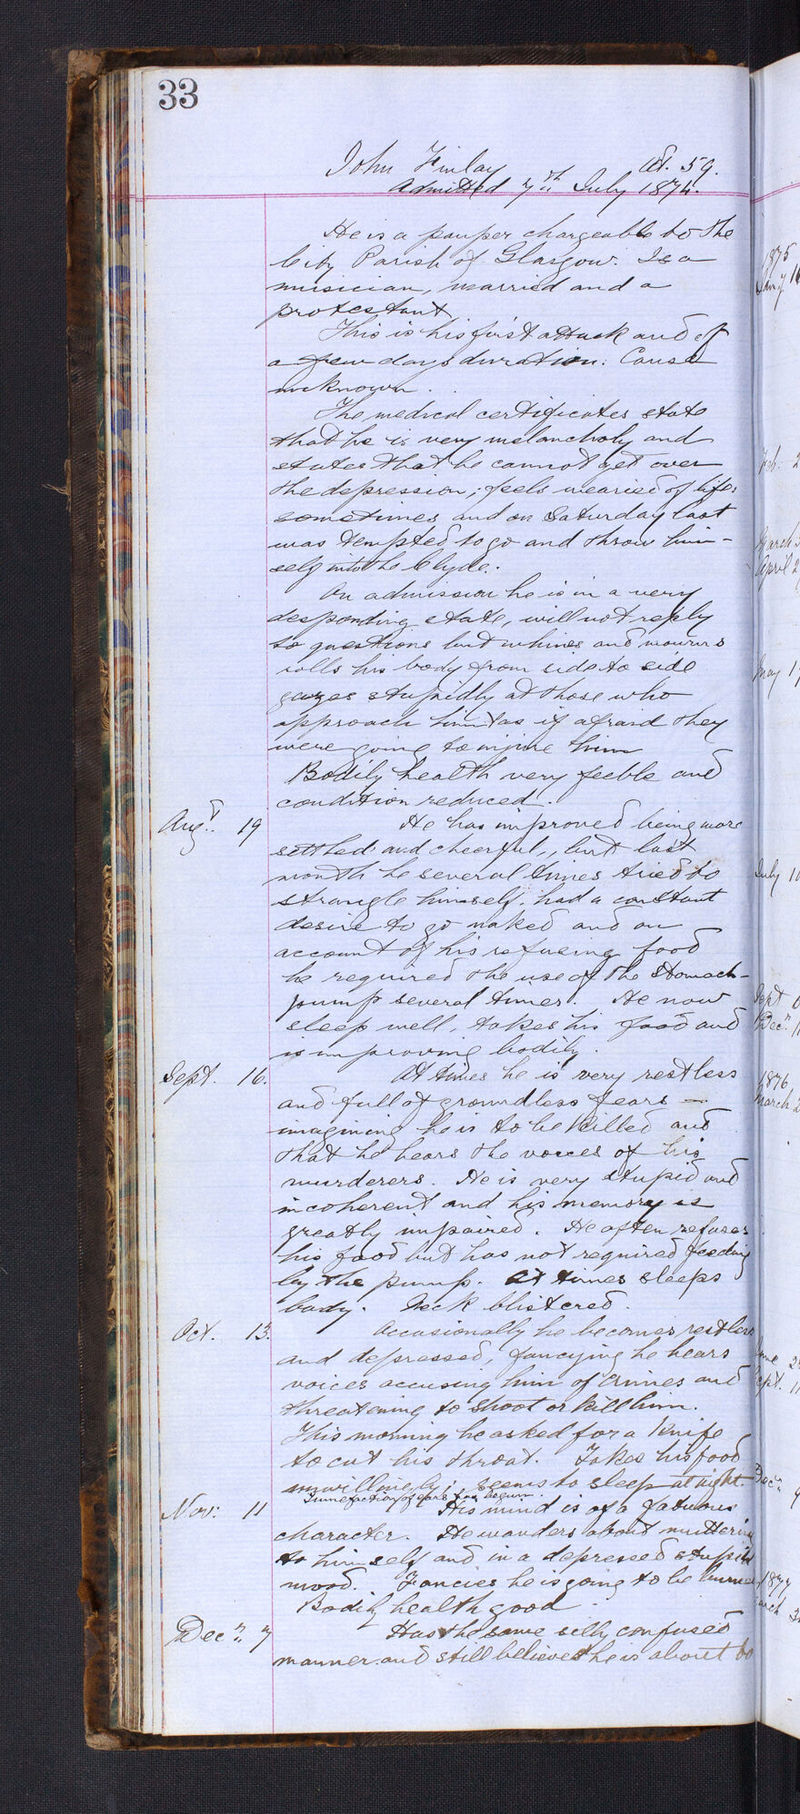 33
John Finlay Æt. 59.
Admitted 7th July 1874.
He is a pauper chargeable to the
City Parish of Glasgow. Is a
musician, married and a
protestant
This is his first attack and of
a few days duration. Cause
unknown.
The medical certificates state
that he is very melancholy and
states that he cannot get over
the depression; feels wearied of life
sometimes and on Saturday last
was tempted to go and throw him-
self into the Clyde.
On admission he is in a very
desponding state, will not reply
to questions but whines and mourns
rolls his body from side to side
gazes stupidly at those who
approach him as if afraid they
were going to injure him
Bodily health very feeble and
condition reduced.
Augt. 19 He has improved being more
settled and cheerful, but last
month he several times tried to
strangle himself, had a constant
desire to go naked and on
account of his refusing food
he required the use of the stomach-
pump several times. He now
sleep well, takes his food and
is improving bodily.
Sept. 16. At times he is very restless
and full of groundless fears –
imagining he is to be killed and
that he hears the voices of his
murderers. He is very stupid and
incoherent and his memory is
greatly impaired. He often refuses
his food but has not required feeding
by the pump. At times sleeps
badly. Neck blistered.
Oct. 13. Occasionally he becomes restless
and depressed, fancying he hears
voices accusing him of crimes and
threatening to shoot or kill him.
This morning he asked for a knife
to cut his throat. Takes his food
unwillingly; seems to sleep at night.
Tumefaction of ears has begun.
Nov: 11 His mind is of a fatuous
character. He wanders about muttering
to himself and in a depressed stupid
mood. Fancies he is going to be burned
Bodily health good.
Decr. 7 Has the same silly confused
manner and still believes he is about to
1875
March
April
May
July 10
Sept
Decr.
1876
March
June
Sept. 11
Decr.
1877